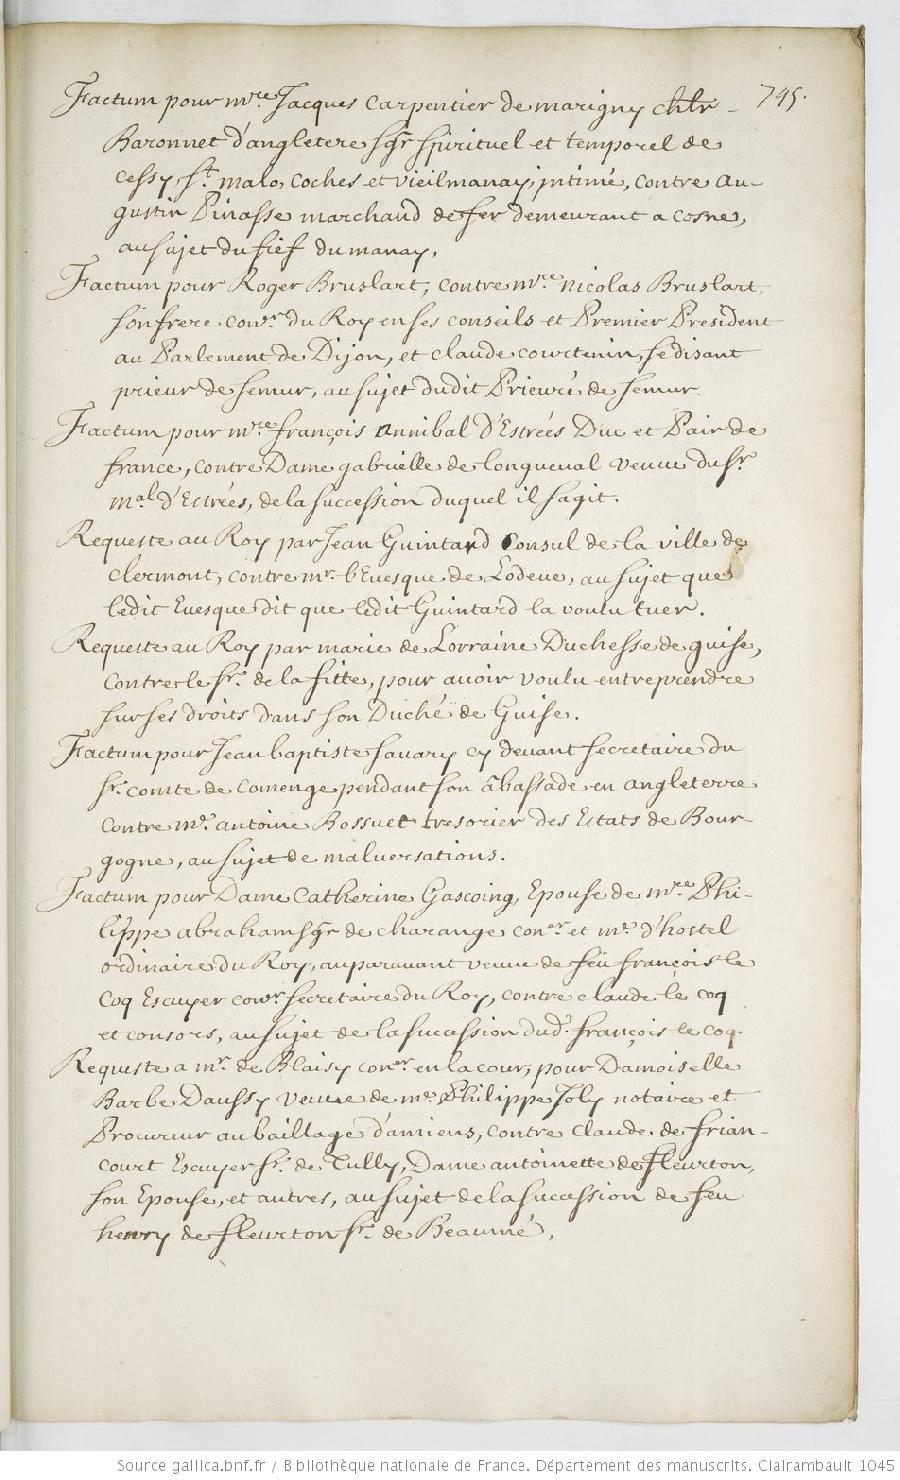 745.
Factum pour mre Jacques Carpentier de marigny chlr
Baronnet d'angletere sgr spirituel et temporel de
cessy, st. malo, coches et vieilmanay, intimé, contre Au-
gustin Pinasse marchand de fer demeurant a cosne,
au sujet du fief du manay.
Factum pour Roger Bruslart, contre mre nicolas Bruslart
son frere conr. du Roy en ses conseils et Premier President
au Parlement de Dijon, et claude courtenin, se disant
prieur de semur, au sujet dudit Prieuré de semur
Factum pour mre françois Annibal d'Estrées Duc et Pair de
france, contre Dame gabrielle de longueual veuue du sr
mal d'Estrées, de la succession duquel il sagit.
Requeste au Roy par Jean Guintard Consul de la ville de
clermont, contre mr. l'Euesque de Lodeue, au sujet que
ledit Euesque dit que ledit Guintard la voulu tuer.
Requeste au Roy par marie de Lorraine Duchesse de guise,
contre le sr. de la fitte, pour auoir voulu entreprendre
sur ses droits dans son Duché de Guise.
Factum pour Jean baptiste sauary cy deuant secretaire du
sr. comte de Comenge pendant son ābassade en angleterre
contre me. antoine Bossuet tresorier des Estats de Bour-
gogne, au sujet de maluersations.
Factum pour Dame Catherine Gascoing, Epouse de mre Phi-
lippe abraham sgr de charange coner. et me. d'hostel
ordinaire du Roy, auparauant veuue de feü françois le
Coq Escuyer conr. secretaire du Roy, contre claude le coq
et consors, au sujet de la sucession dud. françois le coq.
Requeste a mr. de Blaisy coner. en la cour, pour Damoiselle
Barbe Daussy veuue de me Philippe Joly notaire et
Procureur au baillage d'amiens, contre Claude de frian-
court Escuyer sr. de Tully, Dame antoinette de fleurton,
son Epouse, et autres, au sujet de la succession de feu
henry de fleurton sr. de Beaumé,
Source gallica.bnf.fr / Bibliothèque nationale de France. Département des manuscrits. Clairambault 1045